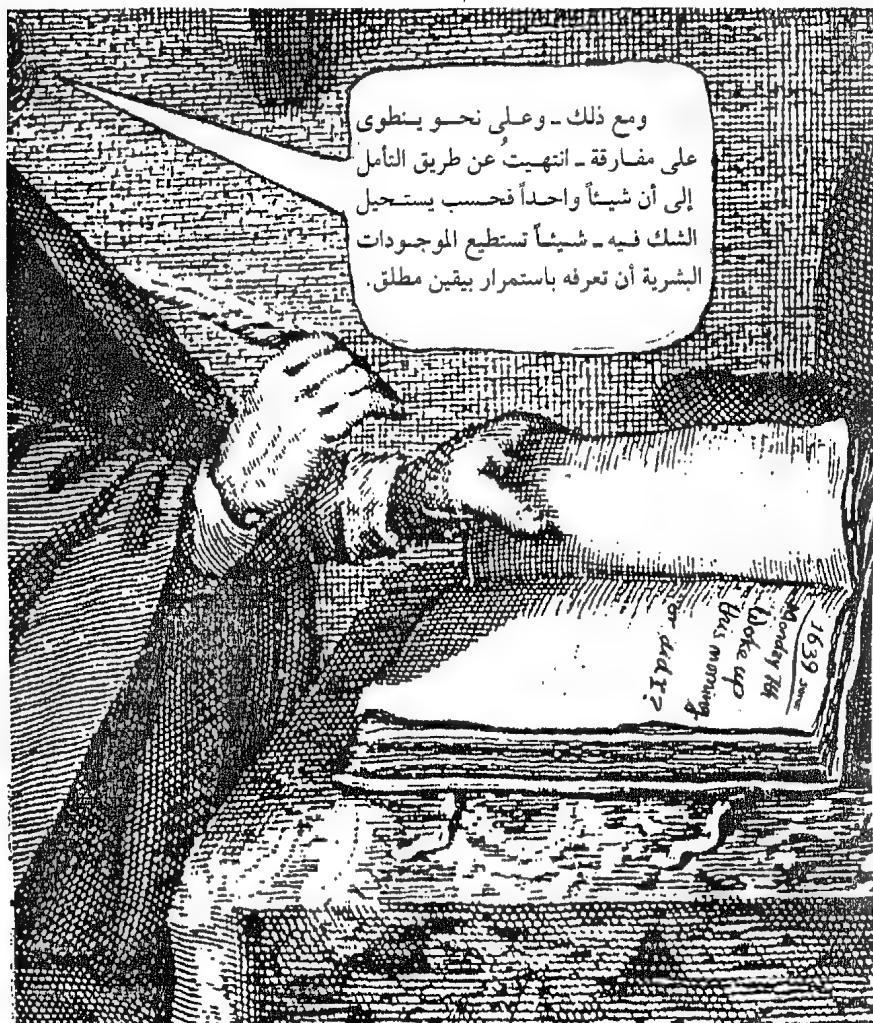 ومع ذلك ـ وعلى نحو ينطوى
على مفارقة ـ انتهيتُ عن طريق التأمل
إلى أن شيئاً واحداً فحسب يستحيل
الشك فيه ـ شيئاً تستطيع الموجودات
البشرية أن تعرفه باستمرار بيقين مطلق.
1639
Monday 7th
Woke up
this morning
or did I?